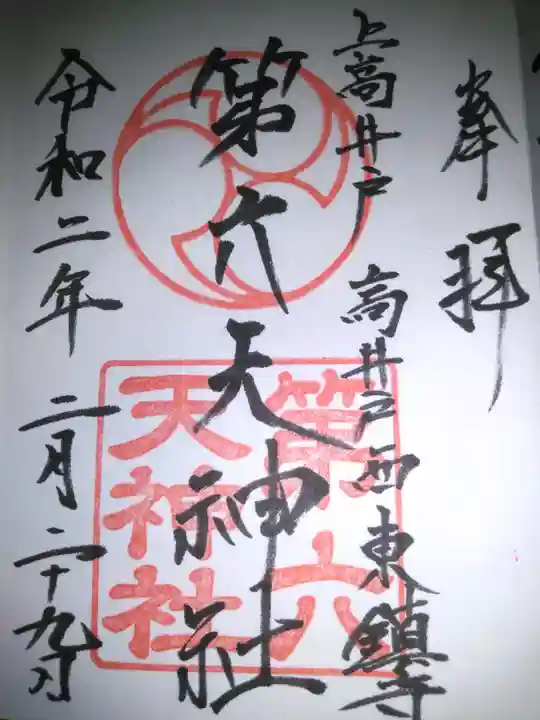 奉拝
上高井戸 高井戸西東鎮守
第六天神社
第六天神社
令和二年 二月二十九日